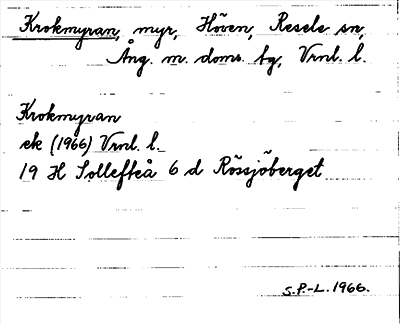 Krokmyran, myr, Höven, Resele sn,
Ång. m. doms. bg, Vrnl. l.
Krokmyran
ek (1966) Vrnl. l.
19 H Sollefteå 6 d Rössjöberget
S.P.-L. 1966.